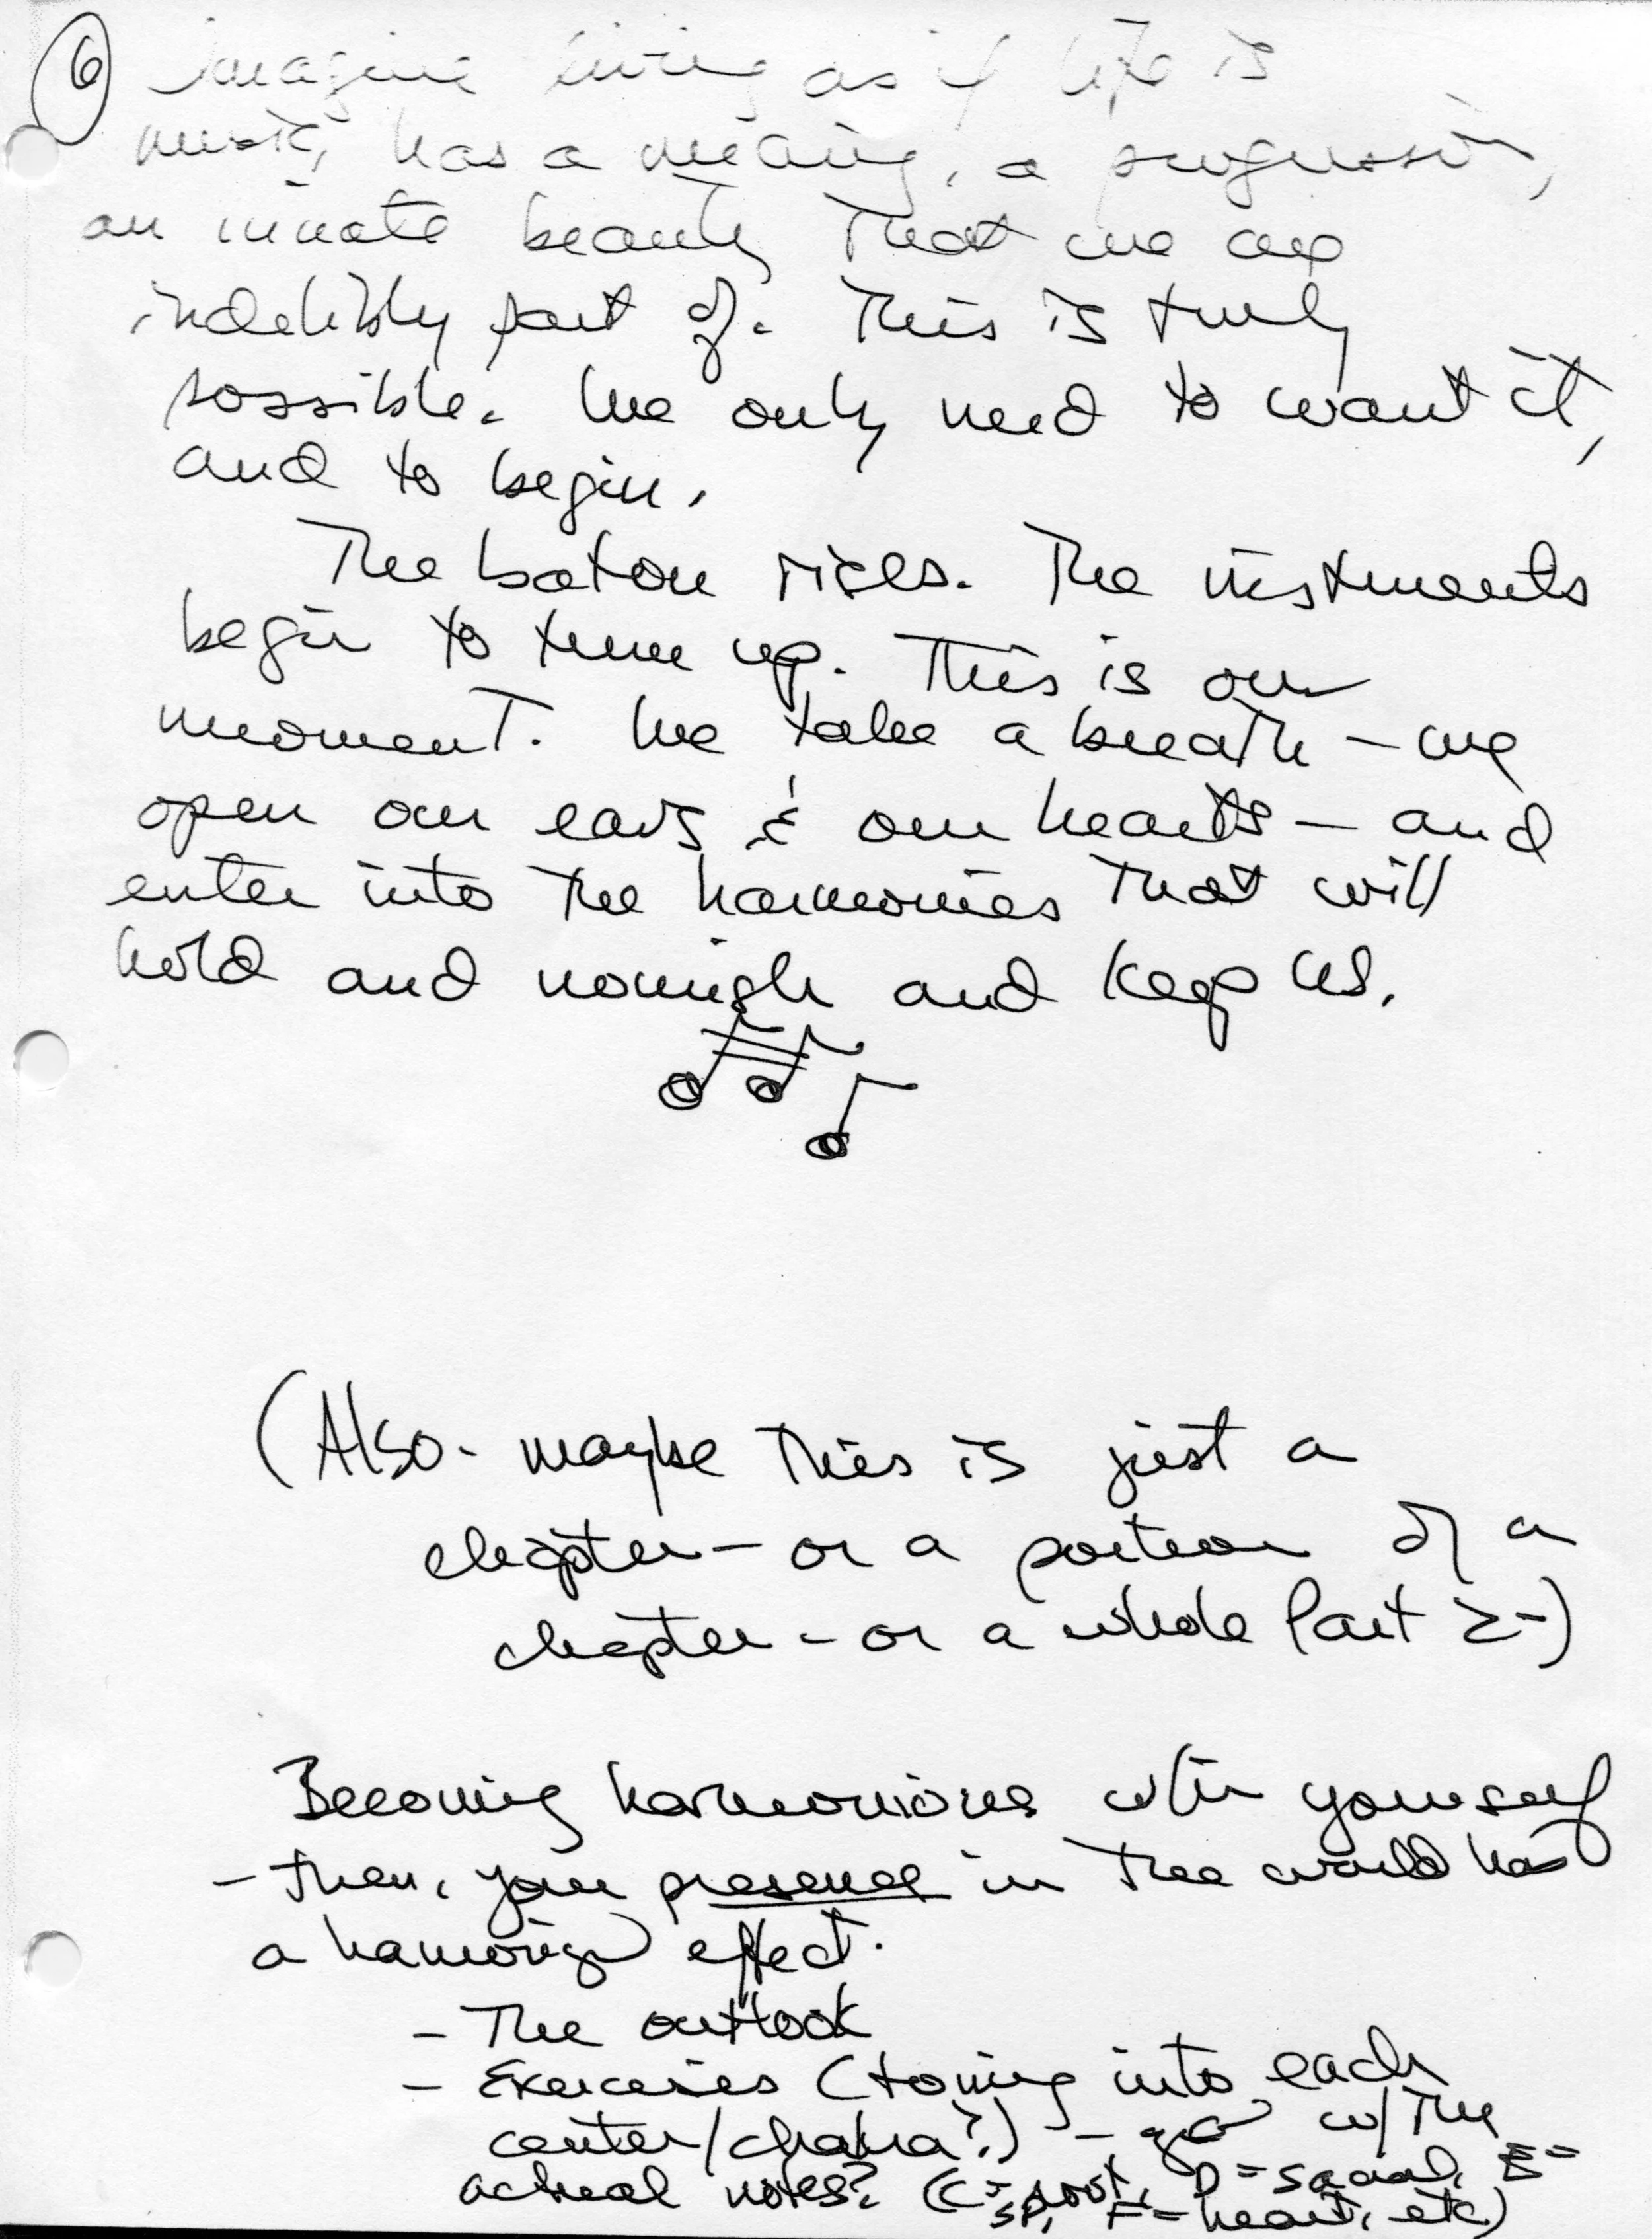 6
imagine living as if life is
music, has a meaning, a progression,
an innate beauty that we are
indelibly part of. This is truly
possible. We only need to want it,
and to begin.
The baton rises. The instruments
begin to tune up. This is our
moment. We take a breath – we
open our ears & our hearts – and
enter into the harmonies that will
hold and nourish and keep us.
(Also - maybe this is just a
chapter – or a portion of a
chapter – or a whole Part 2 –)
Becoming harmonious w/in yourself
– then, your presence in the world has
a harmonizing effect.
– The outlook
– Exercises (toning into each
center/chakra?) – go w/ the
actual notes? (C = root, D = sacral, E =
SP, F = heart, etc)